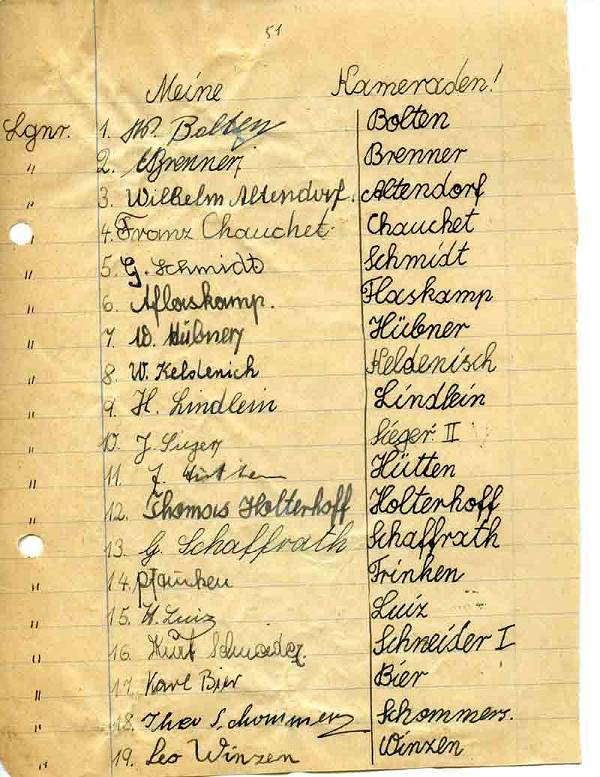 51
Meine Kameraden!
Lgnr. 1. W. Bolten Bolten
" 2. Brenner Brenner
" 3. Wilhelm Altendorf. Altendorf
" 4. Franz Chauchet. Chauchet
" 5. G. Schmidt Schmidt
" 6. A Flaskamp. Flaskamp
" 7. W. Hübner Hübner
" 8. W. Keldenich Keldenisch
" 9. H. Lindlein Lindlein
" 10. J. Sieger Sieger II
" 11. J. Hütten Hütten
" 12. Thomas Holterhoff Holterhoff
" 13. G. Schaffrath Schaffrath
" 14. Frinken
" 15. H. Luiz Luiz
" 16. Kurt Schneider Schneider I
" 17. Karl Bier Bier
" 18. Theo Schommerz Schommers.
" 19. Leo Winzen Winzen